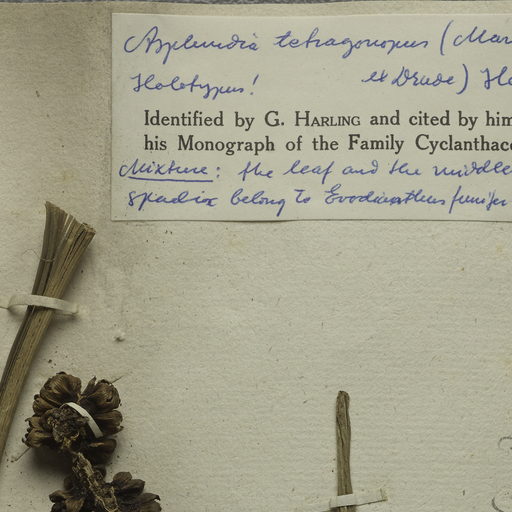 Asplundia tetragonopus (Mar
Holotypus! ex Drude) Ha
Identified by G. HARLING and cited by him
his Monograph of the Family Cyclanthac
Mixture: the leaf and the middle
spadix belong to Evodianthus funifer